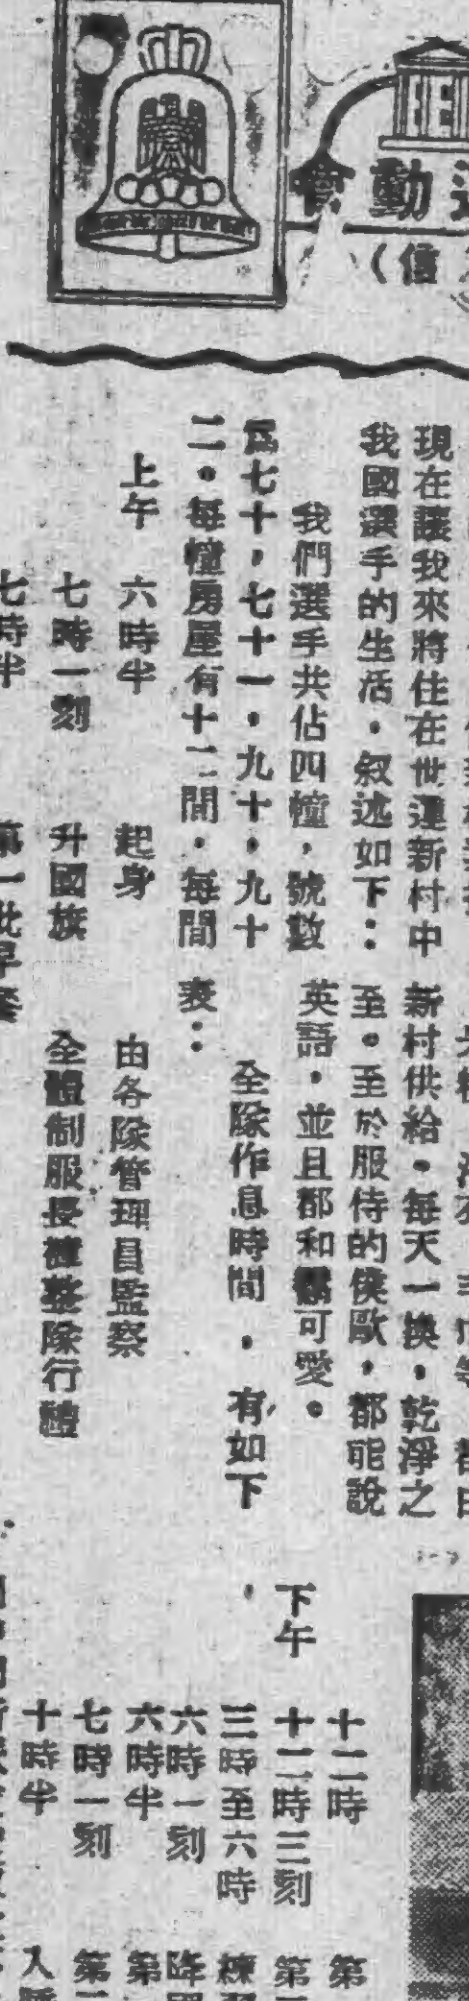 會動運
(信
現在讓我來將住在世運新村中
我國選手的生活，叙述如下：
我們選手共佔四幢，號數
爲七十，七十一，九十，九十
二。每幢房屋有十二間，每間
新村供給。每天一換，乾淨之
至。至於服侍的僕歐，都能說
英語，並且都和靄可愛。
全隊作息時間，有如下
表：
上午 六時半 起身 由各隊管理員監察
七時一刻 升國旗 全體制服長褲整隊行禮
七時半 第一批早餐
十二時 第
下午 十二時三刻 第
三時至六時 練
六時一刻 降
六時半 第
七時一刻 第
十時半 入